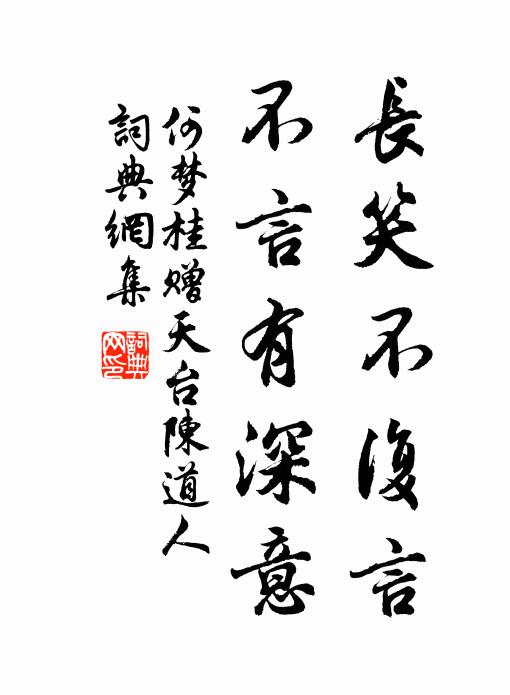 長笑不復言
不言有深意
何梦桂赠天台陳道人
詞典網集
詞典网印